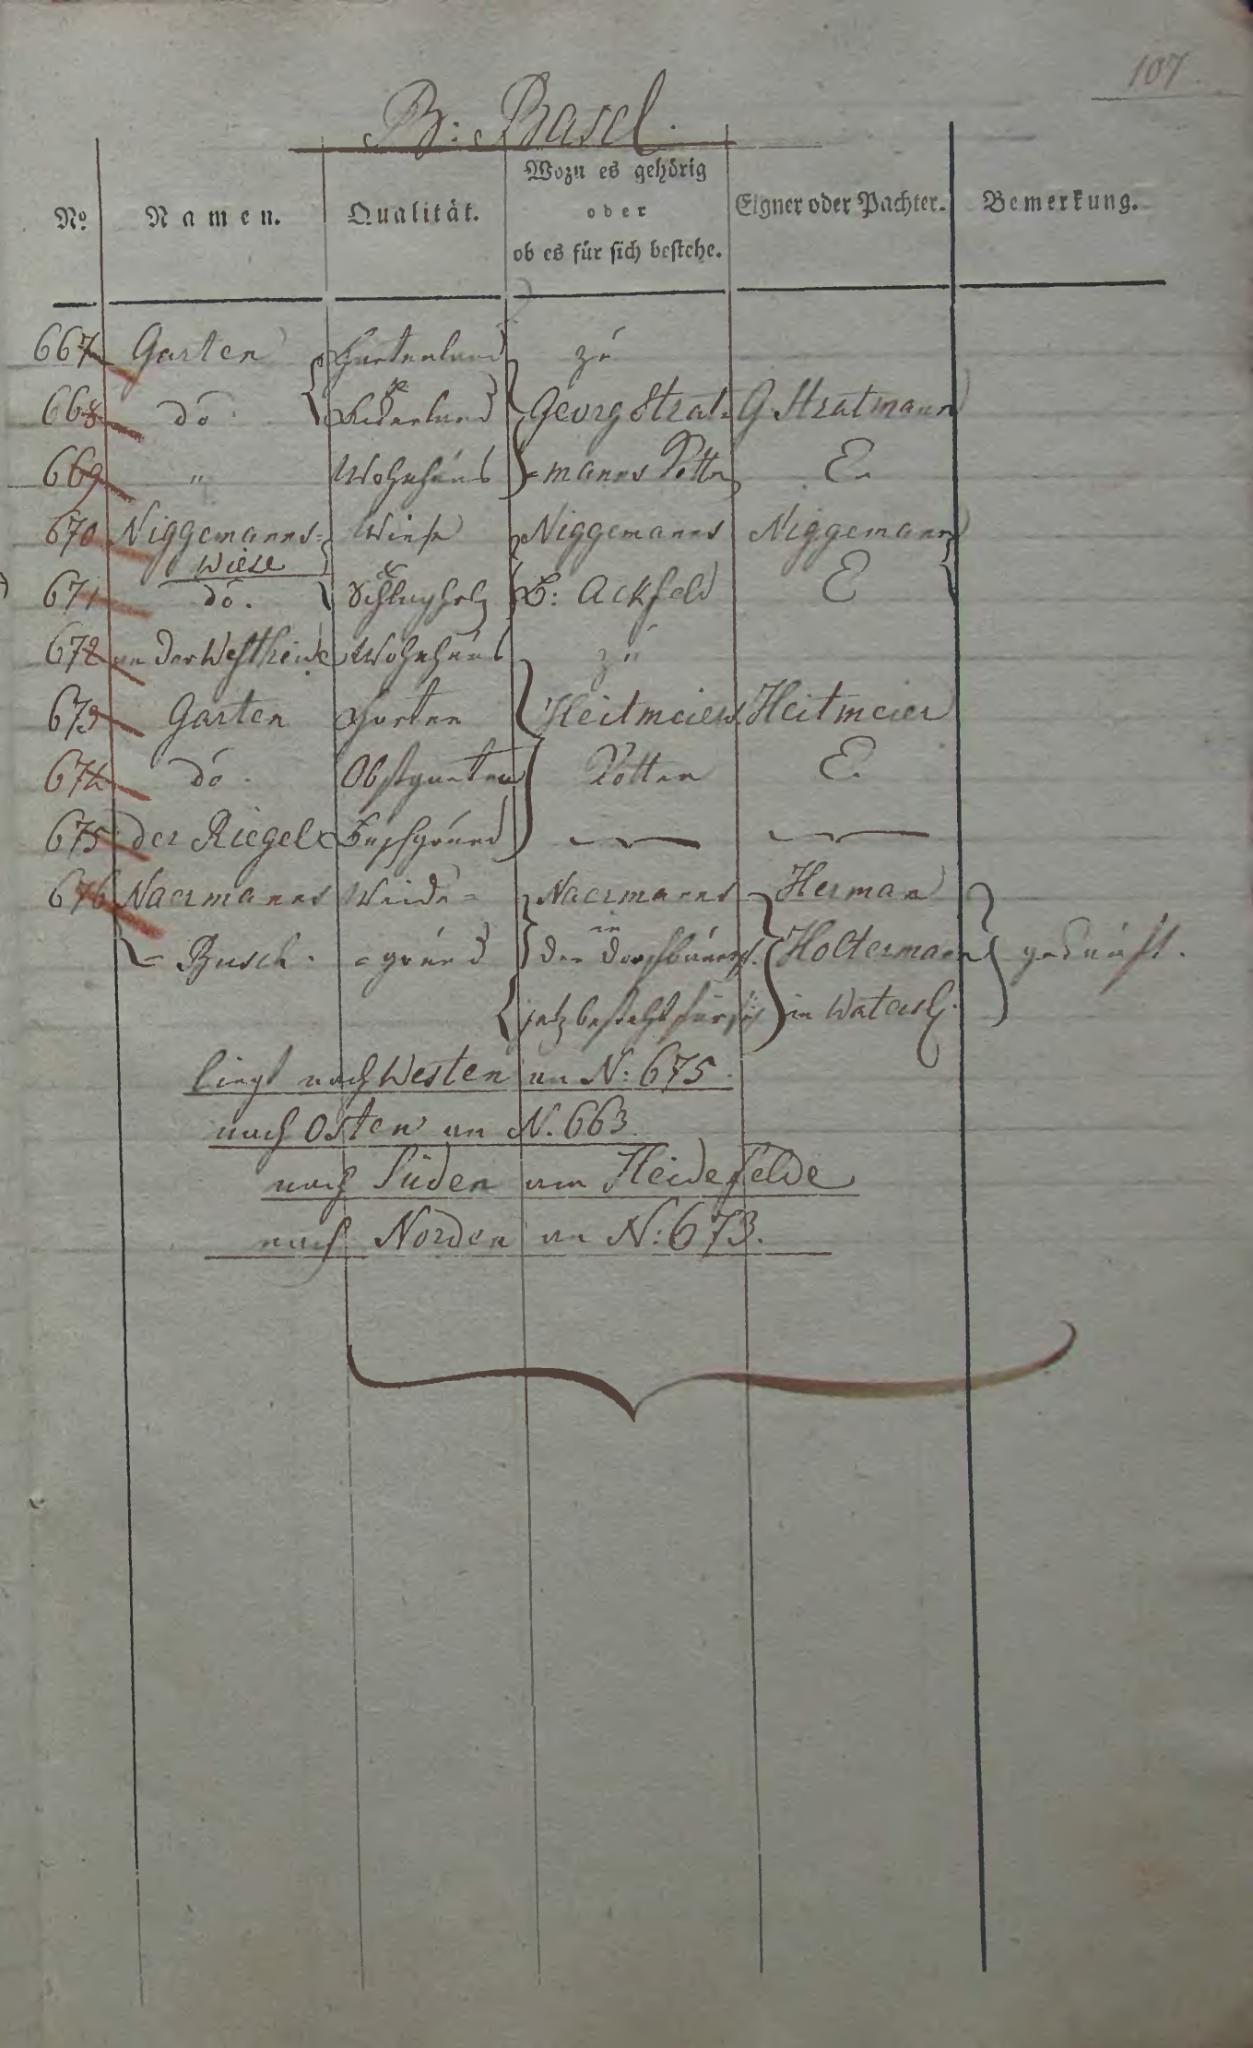 107
B: Basel.
No. Namen. Qualität. Wozu es gehörig oder ob es für sich bestehe. Eigner oder Pachter. Bemerkung.
667 Garten Gartenland zu
668 do Ackerland Georg Strat= G Stratmann
669 " Wohnhaus =manns Kotten E.
670 Niggemanns= Wiese Niggemanns Niggemann
Wiese
671 do. Schlagholz B: Ackfeld E
672 an der Westheide Wohnhaus zu
673 Garten Garten Heitmeiers Heitmeier
674 do. Obstgarten Kotten E.
675 der Riegel Buschgrund
676 Naermanns Weide= Naermanns Herman
=Busch. =grund in der Dorfbauers. Holtermann gekauft.
jetz besteht für sich in Watersl.
liegt nach Westen an N: 675.
nach Osten an N. 663.
nach Süden am Heidefelde
nach Norden an N: 673.